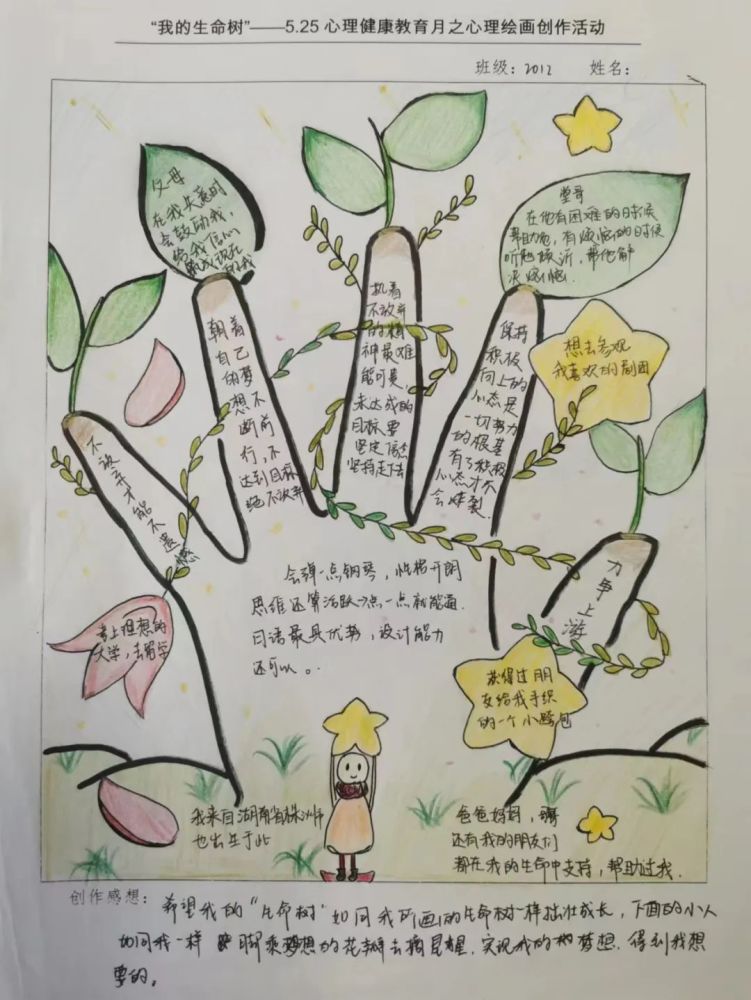 “我的生命树”——5.25 心理健康教育月之心理绘画创作活动
班级：2012 姓名：
父母
在我失意时
会鼓励我，
给我信心
堂哥
在他有困难的时候
帮助他，有烦恼的时候
听他倾诉，帮他解
决烦恼.
想去参观
我喜欢的剧团
不放弃才能不遗憾
朝着
自己
的梦
想不
断前
行，不
达到目标
绝不放弃
执着
不放弃
的精
神最难
能可贵，
未达成的
目标要
坚定信念
坚持走下去
保持
积极
向上的
心态是
一切努力
的根基
有了积极
心态才不
会炸裂.
力争上游
会弹一点钢琴，性格开朗
思维还算活跃一点一点就能通.
日语最具优势，设计能力
还可以。.
考上理想的
大学，去留学
获得过朋
友给我手织
的一个小挎包
我来自湖南省株洲市
也出生于此
爸爸妈妈，
还有我的朋友们
都在我的生命中支持，帮助过我.
创作感想：希望我的“生命树”如同我所画的生命树一样茁壮成长，下面的小人
如同我一样 脚乘梦想的花瓣去摘星星，实现我的梦想，得到我想
要的。